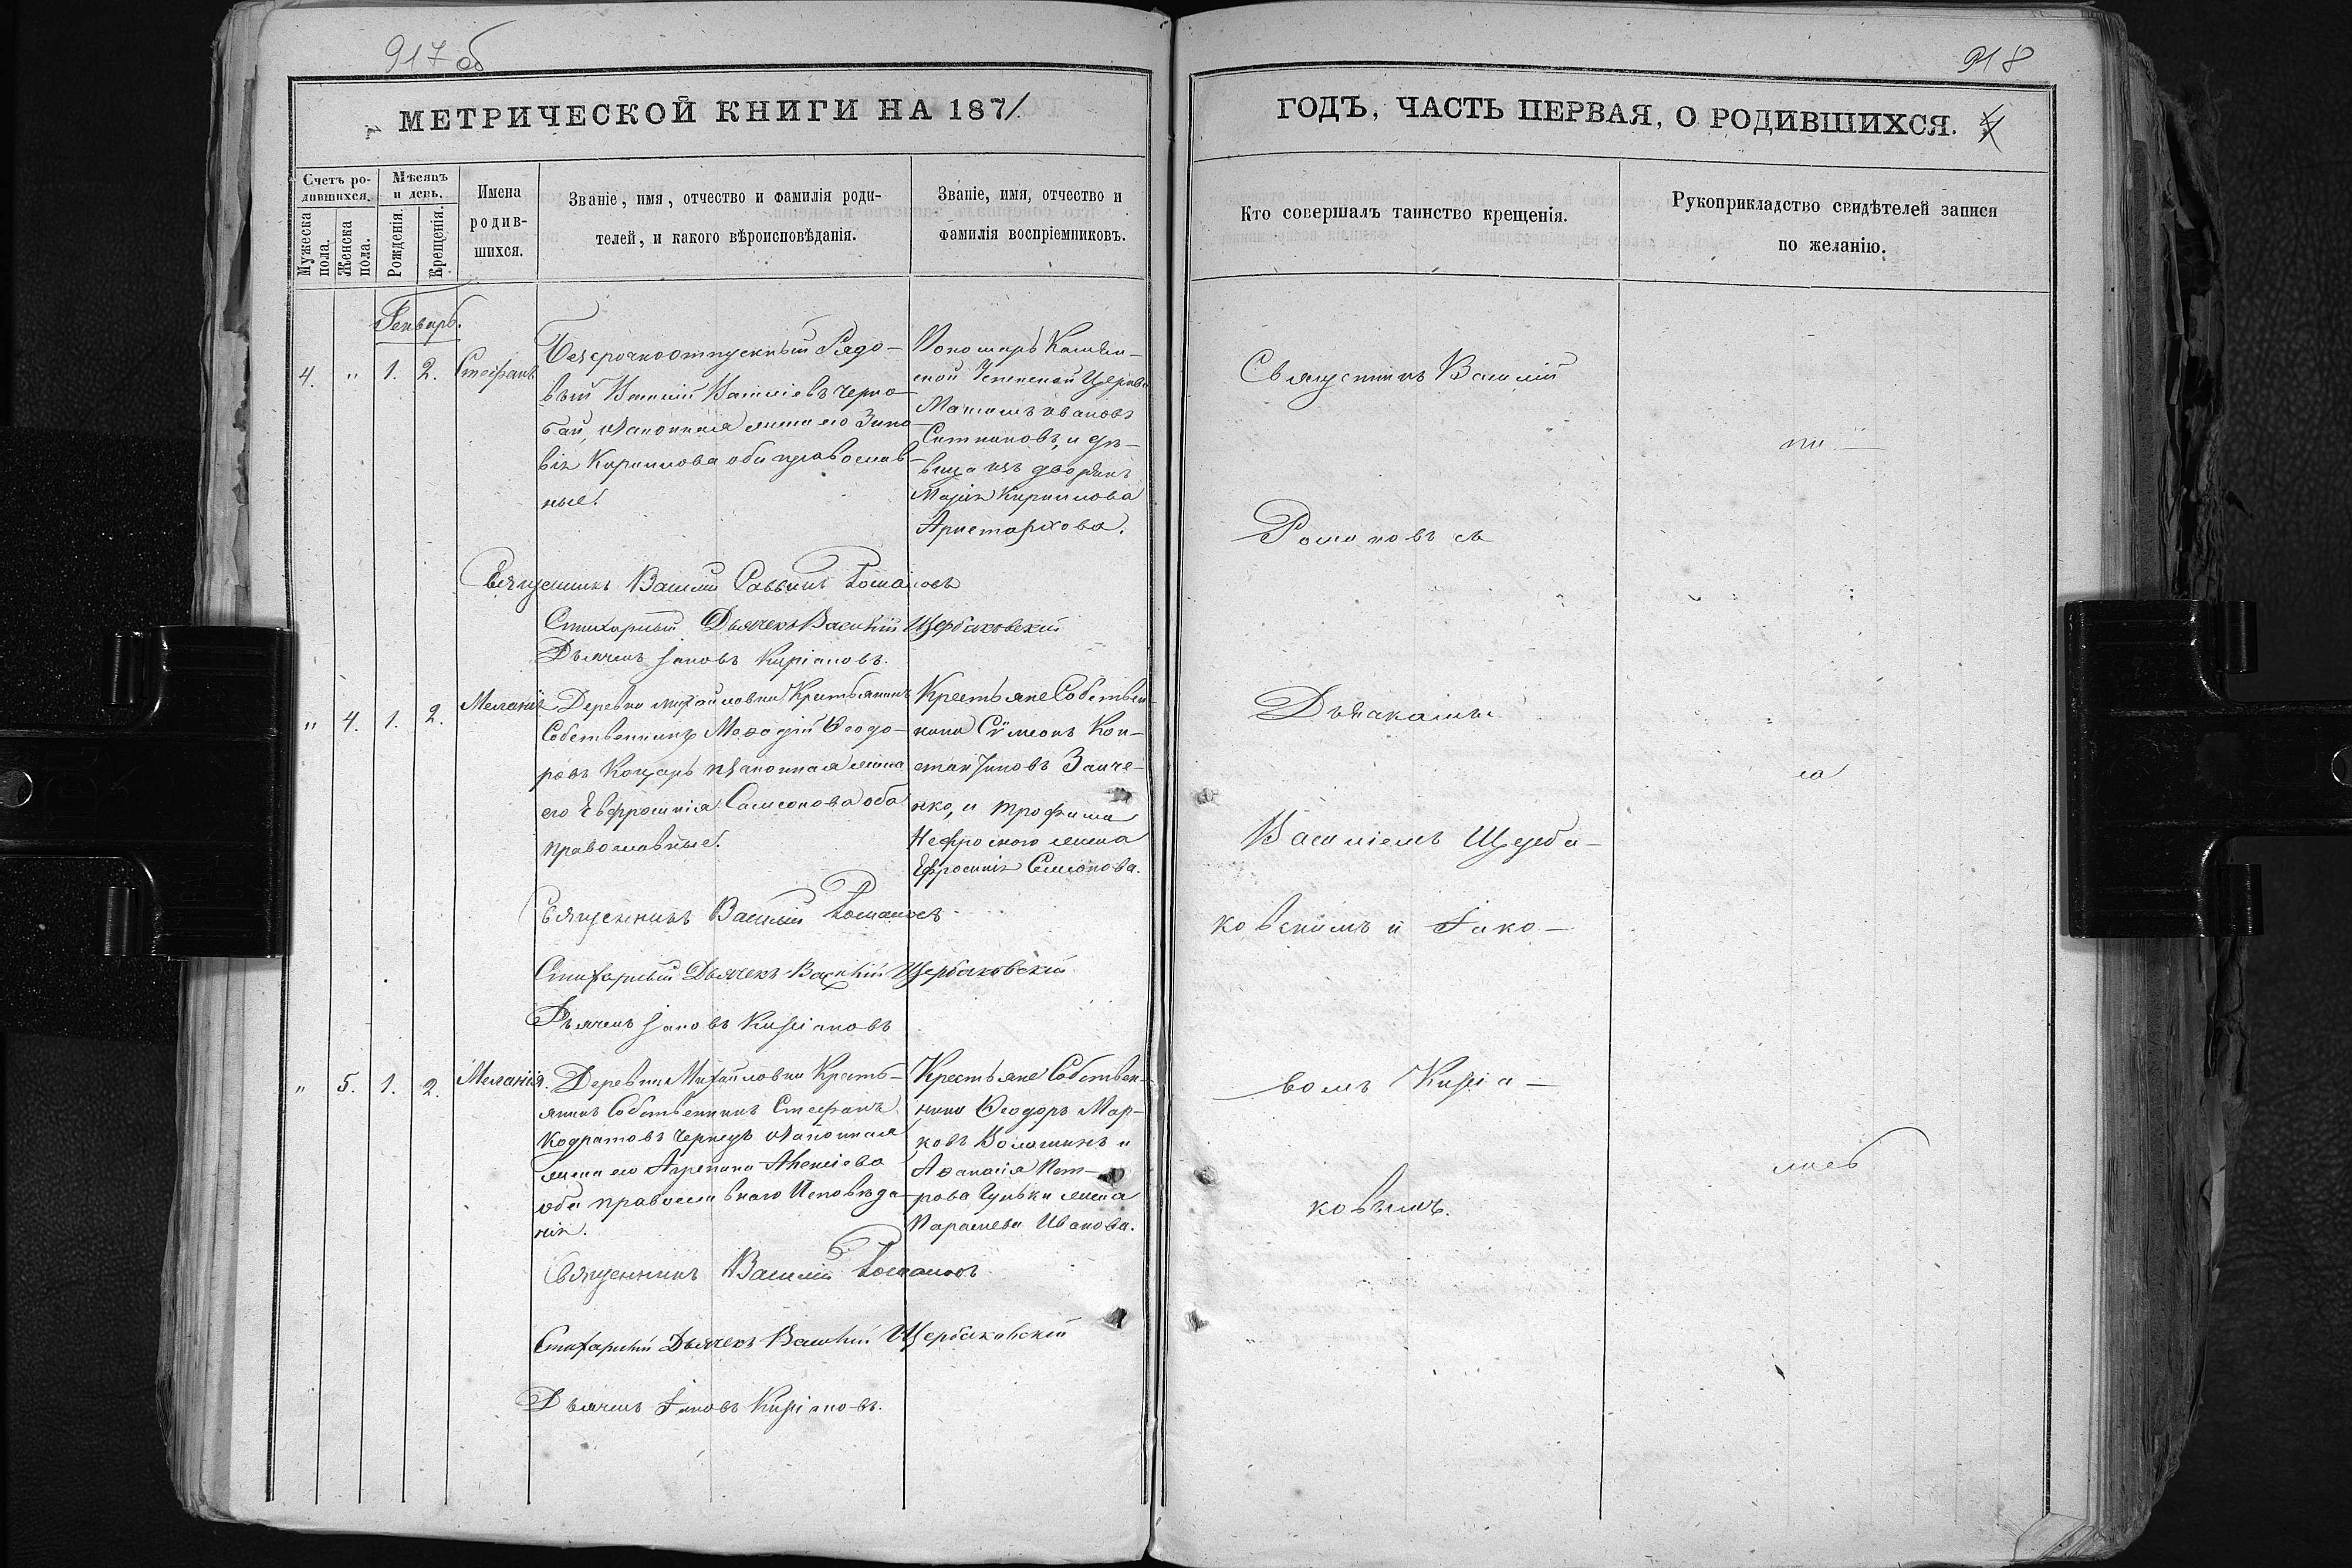 917 об
МЕТРИЧЕСКОЙ КНИГИ НА 1871.
Счетъ родившихся.
Мѣсяцъ и день.
Мужеска пола.
Женска пола.
Рожденія.
Крещенія.
Имена
родив-
шихся.
Званіе, имя, отчество и фамилія роди-
телей, и какого вѣроисповѣданія.
Званіе, имя, отчество и
фамилія воспріемниковъ.
Генварь.
4. " 1. 2. Стефанъ
Безсрочноотпускный Рядо-
вый Василій Василіевъ Черно-
бай, и законная жена его Зино-
вія Кириллова оба православ-
ные.
Пономарь
ской Успенской Церкви
Ивановъ
Ситниковъ, и дѣ-
вица изъ дворянъ
Марія Кириллова
Аристархова.
Священникъ Василій Саввинъ Романовъ
Стихарный Дьячекъ Василій Щербаковскій
Дьячекъ Іаковъ Кирiаковъ.
" 4. 1. 2. Меланія
Деревни Михайловки Крестьянинъ
Собственникъ Меѳодій Ѳеодо-
ровъ Концаръ и законная жена
его Евфросинія Самсонова оба
православные.
Крестьяне Собствен-
ники Сѵмеонъ Кон-
стантиновъ Заиче-
нко, и Трофима
жена
Ефросинія Семіонова.
Священникъ Василій Романовъ
Стихарный Дьячекъ Василій Щербаковскій
Дьячекъ Іаковъ Киріаковъ
" 5. 1. 2. Меланія.
Деревни Михайловки Кресть-
янинъ Собственникъ Стефанъ
Кодратовъ Чернецъ и законная
жена его Агрепина Алексіева
оба православнаго Исповѣда-
нія.
Крестьяне Собствен-
ники Ѳеодоръ Мар-
ковъ Волошинъ и
Аѳанасія Пет-
рова Гуньки жена
Параскева Иванова.
Священникъ Василій Романовъ
Стихарный Дьячекъ Василій Щербаковскій
Дьячекъ Іаковъ Киріаковъ.
918
ГОДЪ, ЧАСТЬ ПЕРВАЯ, О РОДИВШИХСЯ. 4
Кто совершалъ таинство крещенія.
Рукоприкладство свидѣтелей записи
по желанію.
Священникъ Василій
Романовъ съ
Дьячками
Василіемъ Щерба-
ковскимъ и Іако-
вомъ Киріа-
ковымъ.